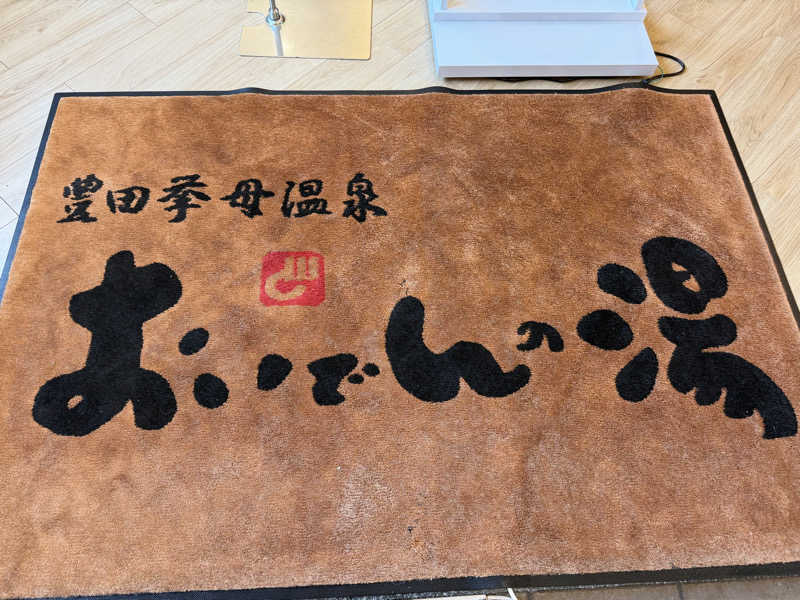 豊田挙母温泉
おいでんの湯